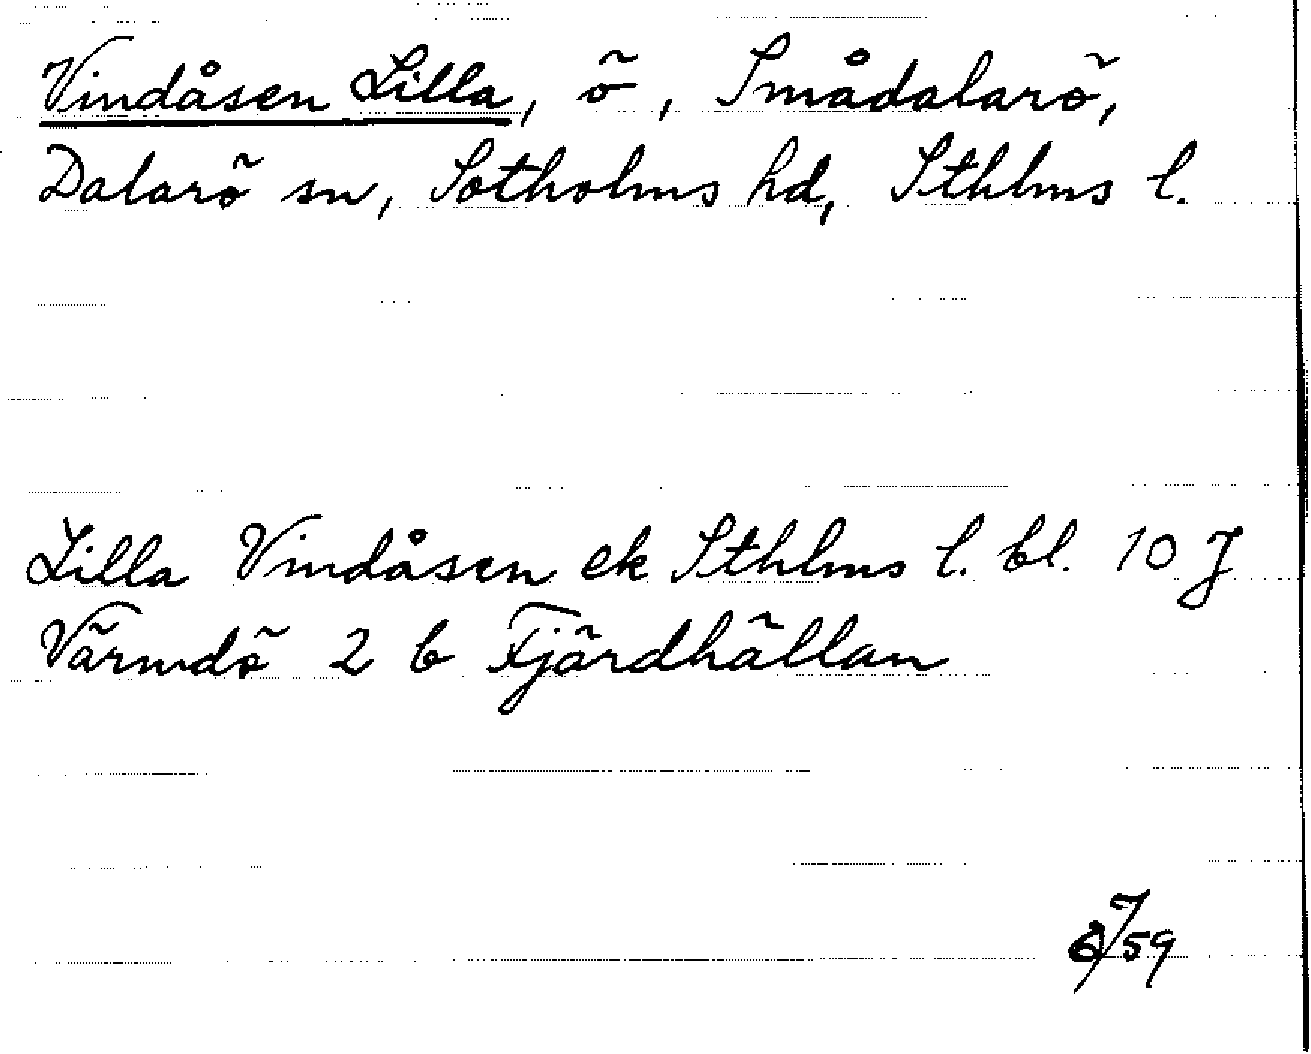 Vindåsen Lilla, ö, Smådalarö,
Dalarö sn, Sotholms hd, Sthlms l.
Lilla Vindåsen ek Sthlms l. bl. 10 J
Värmdö 2 b Fjärdhällan
6/7 59